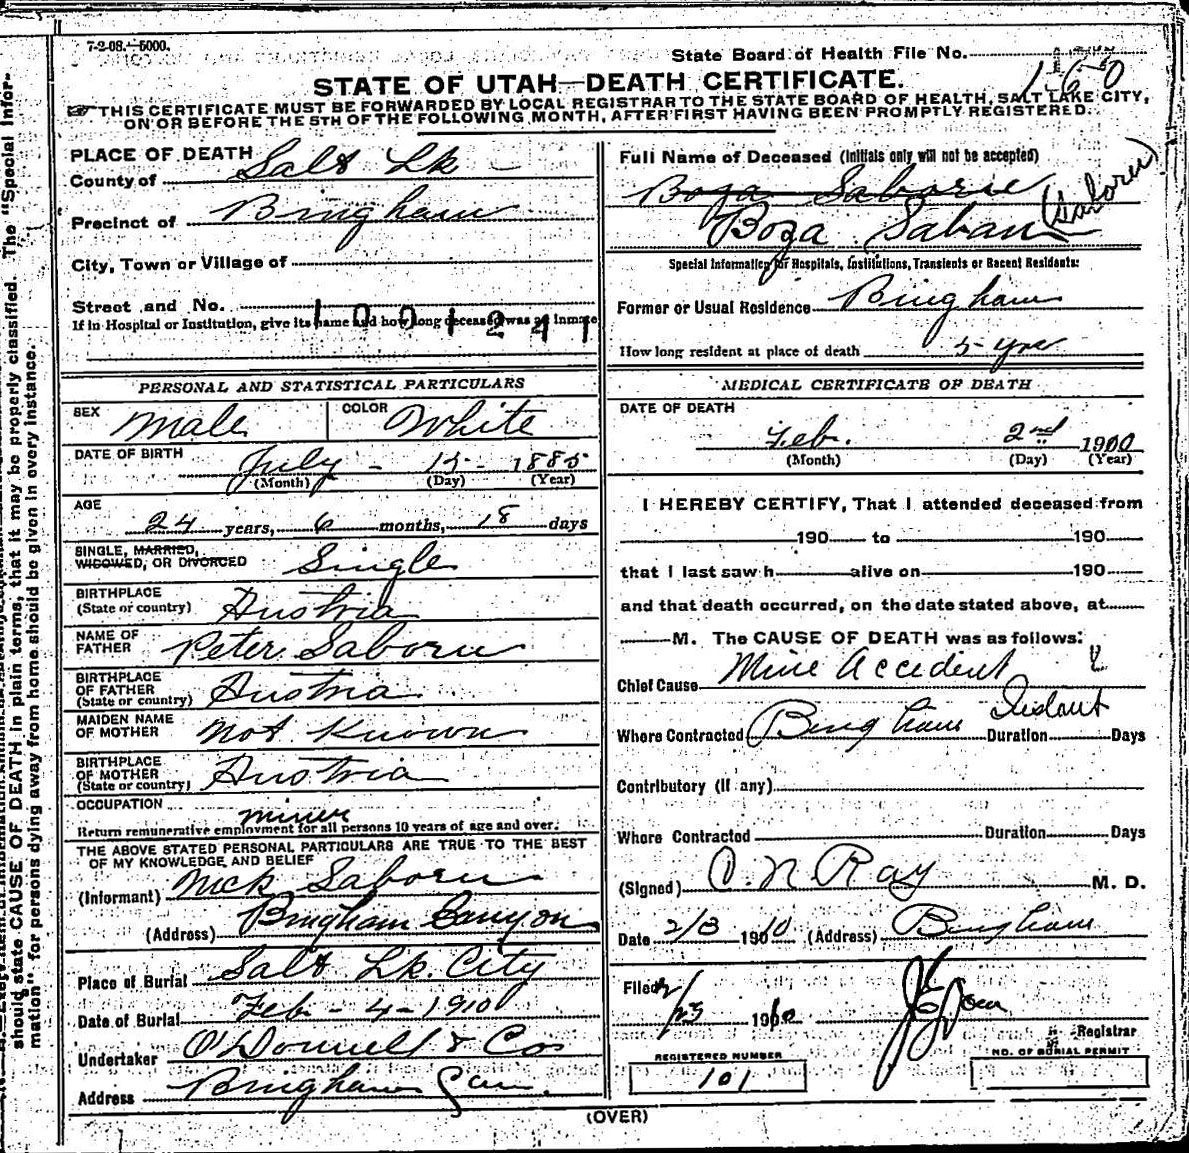 7-2-08.—5000.
State Board of Health File No.
160
STATE OF UTAH—DEATH CERTIFICATE.
☞THIS CERTIFICATE MUST BE FORWARDED BY LOCAL REGISTRAR TO THE STATE BOARD OF HEALTH, SALT LAKE CITY,
ON OR BEFORE THE 5TH OF THE FOLLOWING MONTH, AFTER FIRST HAVING BEEN PROMPTLY REGISTERED.
PLACE OF DEATH
County of Salt Lk
Precinct of Bingham
City, Town or Village of
Street and No.
1001241
If in Hospital or Institution, give its name and how long deceased was an inmate
PERSONAL AND STATISTICAL PARTICULARS
SEX Male COLOR White
DATE OF BIRTH July - 15 - 1885
(Month) (Day) (Year)
AGE
24 years, 6 months, 18 days
SINGLE, MARRIED,
WIDOWED, OR DIVORCED Single
BIRTHPLACE
(State or country) Austria
NAME OF
FATHER Peter Saboru
BIRTHPLACE
OF FATHER
(State or country) Austria
MAIDEN NAME
OF MOTHER Not Known
BIRTHPLACE
OF MOTHER
(State or country) Austria
OCCUPATION miner
Return remunerative employment for all persons 10 years of age and over.
THE ABOVE STATED PERSONAL PARTICULARS ARE TRUE TO THE BEST
OF MY KNOWLEDGE AND BELIEF
(Informant) Nick Saboru
(Address) Bingham Canyon
Place of Burial Salt Lk. City
Date of Burial Feb - 4 - 1910
Undertaker O'Donnell & Co
Address Bingham Can
Full Name of Deceased (Initials only will not be accepted)
Boza Saborie
Boza Saban (Saboru)
Special Information for Hospitals, Institutions, Transients or Recent Residents:
Former or Usual Residence Bingham
How long resident at place of death 5 yrs
MEDICAL CERTIFICATE OF DEATH
DATE OF DEATH
Feb. 2nd 1910
(Month) (Day) (Year)
I HEREBY CERTIFY, That I attended deceased from
190 to 190
that I last saw h alive on 190
and that death occurred, on the date stated above, at
M. The CAUSE OF DEATH was as follows:
Chief Cause Mine Accident
Where Contracted Bingham Duration Instant Days
Contributory (if any)
Where Contracted Duration Days
(Signed) O. N. Ray M. D.
Date 2/3 1910 (Address) Bingham
Filed 2/23 1910
Registrar
REGISTERED NUMBER
101
NO. OF BURIAL PERMIT
(OVER)
should state CAUSE OF DEATH in plain terms, that it may be properly classified. The "Special Infor-
mation" for persons dying away from home should be given in every instance.